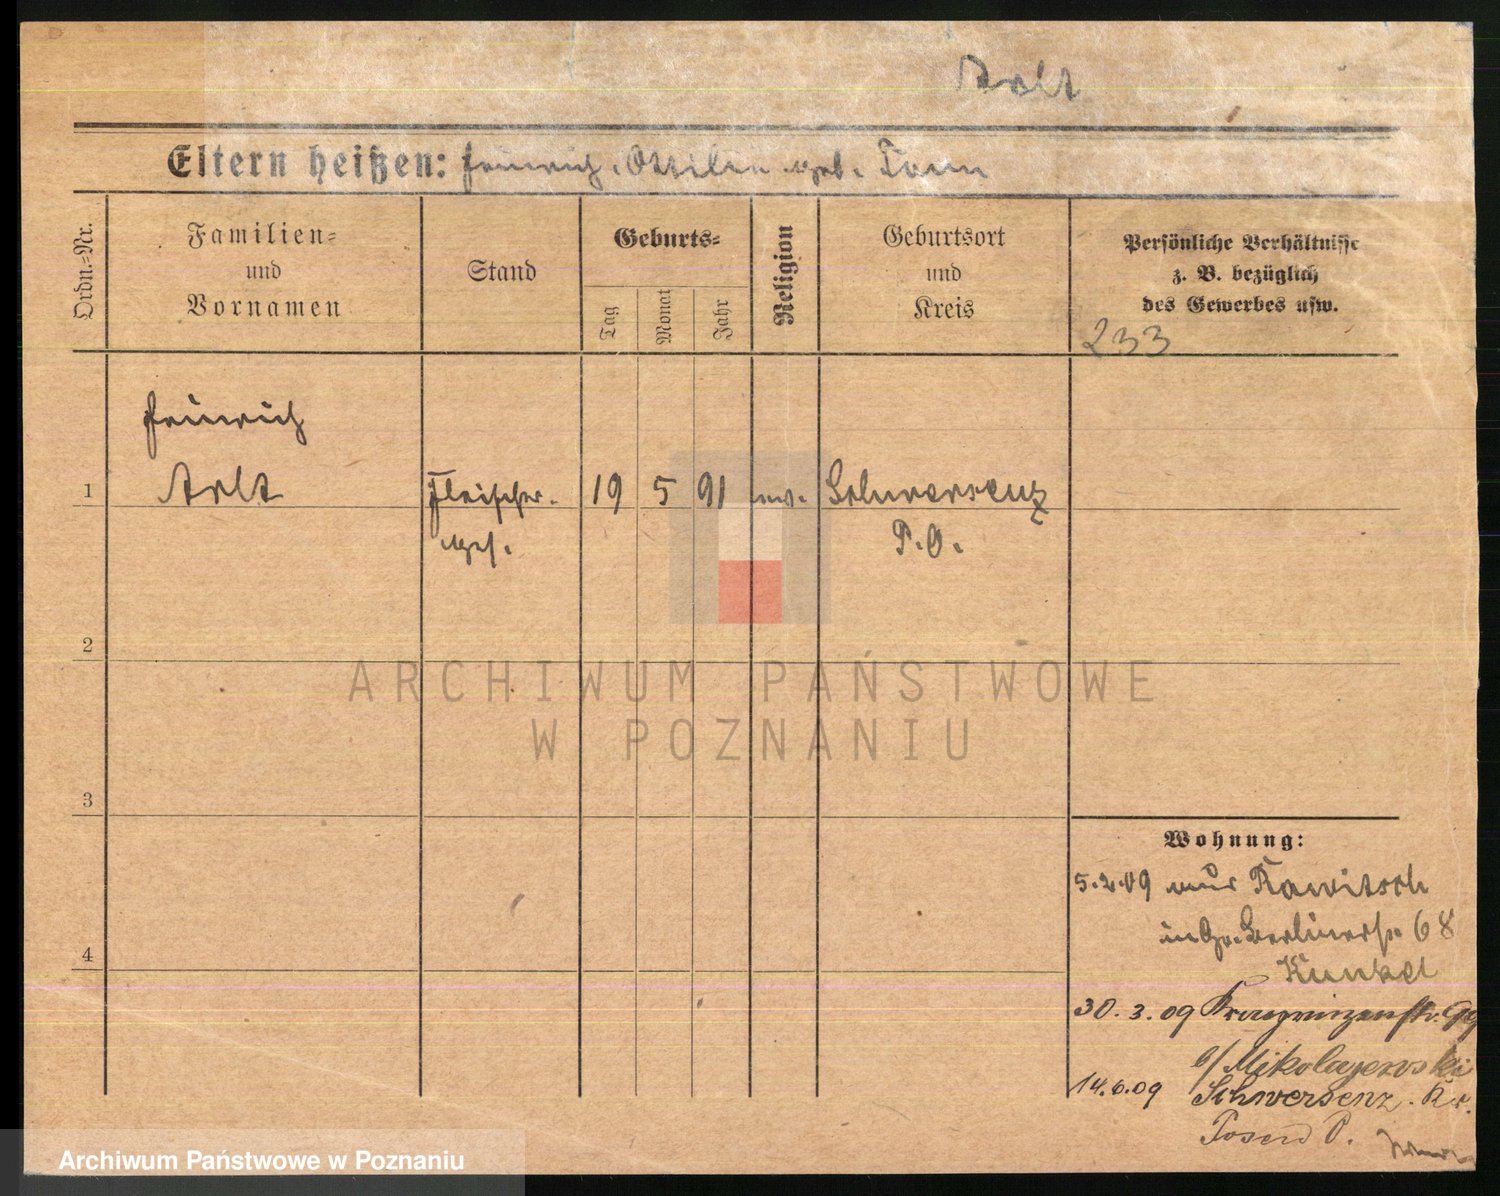 Arlt
Eltern heißen: Heinrich, Ottilie geb. Tonn
Ordn.=Nr.
Familien=
und
Vornamen
Stand
Geburts=
Tag
Monat
Jahr
Religion
Geburtsort
und
Kreis
Persönliche Verhältnisse
z. B. bezüglich
des Gewerbes usw.
233
Heinrich
1 Arlt Fleischer- 19 5 91 ev. Schwersenz
ges. P. O.
2
3
4
Wohnung:
5.2.09 aus Rawitsch
in Gr. Berlinerstr. 68
Kunkel
30.3.09 Kronprinzenstr. 99
b/Mikolajewski
14.6.09 Schwersenz. Kr.
Posen O.
ARCHIWUM PAŃSTWOWE
W POZNANIU
Archiwum Państwowe w Poznaniu